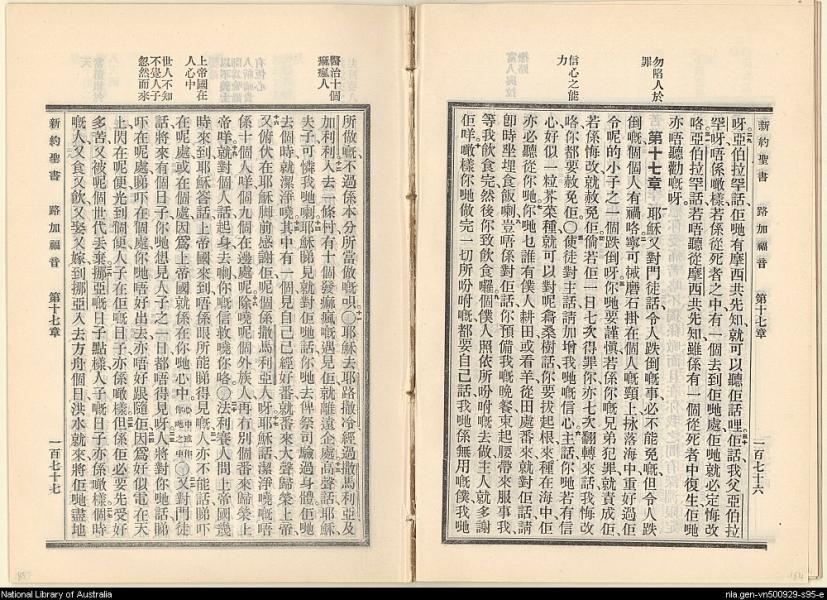 新約聖書 路加福音 第十七章 一百七十六
勿陷人於
罪
信心之能
力
呀亞伯拉罕話佢哋有摩西共先知就可以聽佢話哩佢話我父亞伯拉
罕呀唔係噉樣若係從死者之中有一個去到佢哋處佢哋就必定悔改
咯亞伯拉罕話若唔聽從摩西共先知雖係有一個從死者中復生佢哋
亦唔聽勸嘅呀
第十七章 耶穌又對門徒話令人跌倒嘅事必不能免嘅但令人跌
倒嘅個個人有禍咯寧可將磨石掛在個人嘅頸上抌落海中重好過佢
令呢的小子之一個跌倒呀你哋要謹慎若係你嘅兄弟犯罪就責成佢
若係悔改就赦免佢倘若佢一日七次得罪你亦七次翻轉來話我悔改
咯你都要赦免佢○使徒對主話請加增我哋嘅信心主話你哋若有信
心好似一粒芥菜種就可以對呢喬桑樹話你要拔起根來種在海中佢
亦必聽從你哋你哋乜誰有僕人耕田或看羊從田處番來就對佢話請
卽時坐埋食飯喇豈唔係對佢話你預備我嘅晚餐束起腰帶來服事我
等我飲食完然後你致飲食囉個僕人照依所吩咐嘅去做主人就多謝
佢咩噉樣你哋做完一切所吩咐嘅都要自己話我哋係無用嘅僕我哋
新約聖書 路加福音 第十七章 一百七十七
醫治十個
痲瘋人
上帝國在
人心中
世人不知
不覺人子
忽然而來
所做嘅不過係本分所當做嘅唄○耶穌去耶路撒冷經過撒馬利亞及
加利利入去一條村有十個發痲瘋嘅遇見佢就離遠企處高聲話耶穌
夫子可憐我哋喇耶穌睇見就對佢哋話你哋去俾祭司驗過身體佢哋
去個時就潔淨嘵其中有一個見自己已經好番就番來大聲歸榮上帝
又俯伏在耶穌脚前感謝佢呢個係撒馬利亞人呀耶穌話潔淨嘵嘅唔
係十個人咩個九個在邊處呢除嘵呢個外族人再有別個番來歸榮上
帝咩就對個人話起身去喇你嘅信救嘵你咯○法利賽人問上帝國幾
時來到耶穌答話上帝國來到唔係眼所能睇得見嘅人亦不能話睇吓
在呢處或在個處因爲上帝國就係在你哋心中○又對門徒
話將來有個日子你哋想見人子之一日都唔得見呀人將對你哋話睇
吓在呢處睇吓在個處你哋唔好出去亦唔好跟隨佢因爲好似電在天
上閃在呢便光到個便人子在佢嘅日子亦係噉樣但係佢必要先受好
多苦又被呢個世代丢棄挪亞嘅日子點樣人子嘅日子亦係噉樣個時
嘅人又食又飲又娶又嫁到挪亞入去方舟個日洪水就來將佢哋盡地
National Library of Australia
nla.gen-vn500929-s95-e